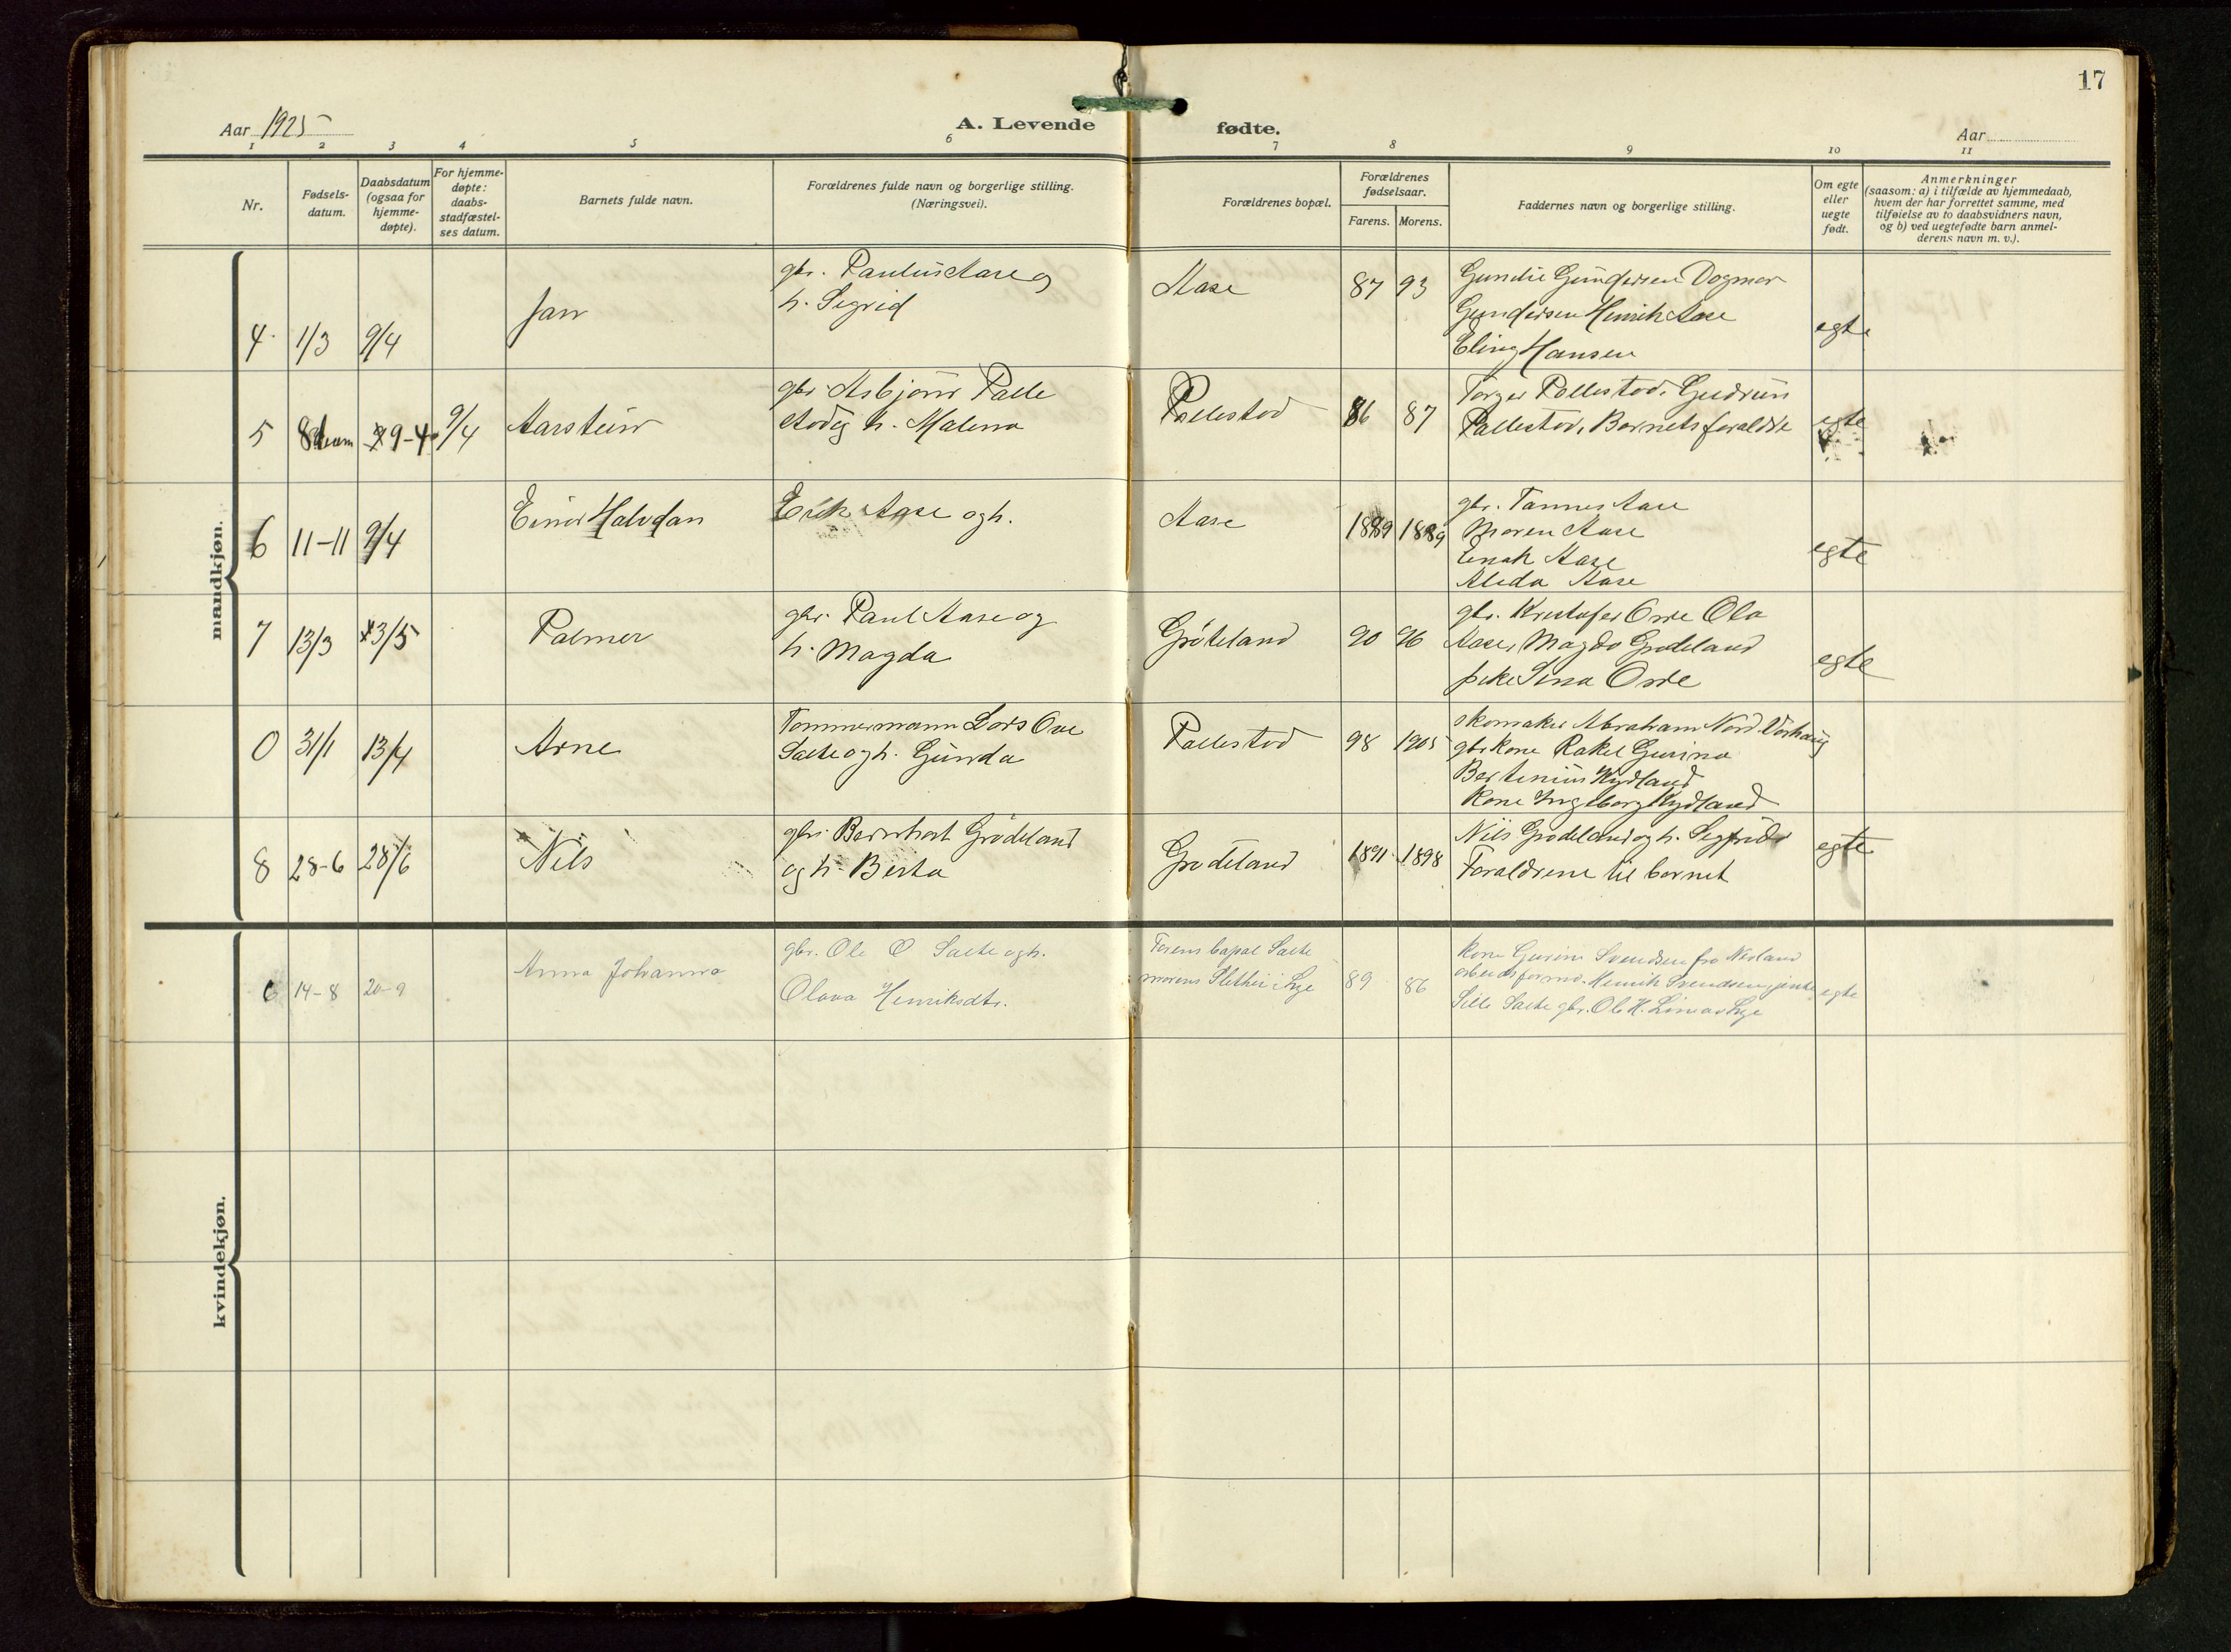 17
Aar 1925
A. Levende
fødte.
Aar
1 2 3 4 5 6 7 8 9 10 11
Nr.
Fødsels-
datum.
Daabsdatum
(ogsaa for
hjemme-
døpte).
For hjemme-
døpte:
daabs-
stadfæstel-
ses datum.
Barnets fulde navn.
Forældrenes fulde navn og borgerlige stilling.
(Næringsvei).
Forældrenes bopæl.
Forældrenes
fødselsaar.
Farens. Morens.
Faddernes navn og borgerlige stilling.
Om egte
eller
uegte
født.
Anmerkninger
(saasom: a) i tilfælde av hjemmedaab,
hvem der har forrettet samme, med
tilføielse av to daabsvidners navn,
og b) ved uegtefødte barn anmel-
derens navn m. v.).
mandkjøn.
4 1/3 9/4
Jan
gbr. Paulus Aase og
h. Sigrid
Aase
87 93
Gundersen Dagmar
Gundersen Henrik Aase
Hansen
egte
5 9-4 9/4
Aarstein
gbr Asbjørn Palle
stad og h. Malena
Pallestad
86 87
Torger Pallestad, Gudrun
Pallestad, Barnets foraldre
egte
6 11-11 9/4
Einar Halvdan
Erik Aase og h.
Aase
1889 1889
gbr. Tønnes Aase
Maren Aase
Enok Aase
Alida Aase
egte
7 13/3 3/5
Palmer
gbr. Paul Aase og
h. Magda
Grødeland
90 96
gbr. Kristofer Orre Ola
Aase, Magda Grødeland
pike Sina Orre
egte
0 31/1 13/4
Arne
Tømmermann Lars Ove
Salte og h. Gunda
Pallestad
98 1905
skomaker Abraham Nord Varhaug
gbrkone Rakel Gurina
Bertinius Kydland
Kone Ingeborg Kydland
8 28-6 28/6
Nils
gbr. Bernhart Grødeland
og h. Berta
Grødeland
1891 1898
Nils Grødeland og h. Sigfrid
Foraldrene til barnet
egte
kvindekjøn.
6 14-8 20-9
Anna Johanna
gbr. Ole O Salte og h.
Olava Henriksdtr.
Farens bopæl Salte
morens Sletthei i Lye
89 86
Kone Gurine Svendsen fra Nærland
arbeidsformd. Henrik Svendsen jente
Sille Salte gbr. Ole H. Lye
egte